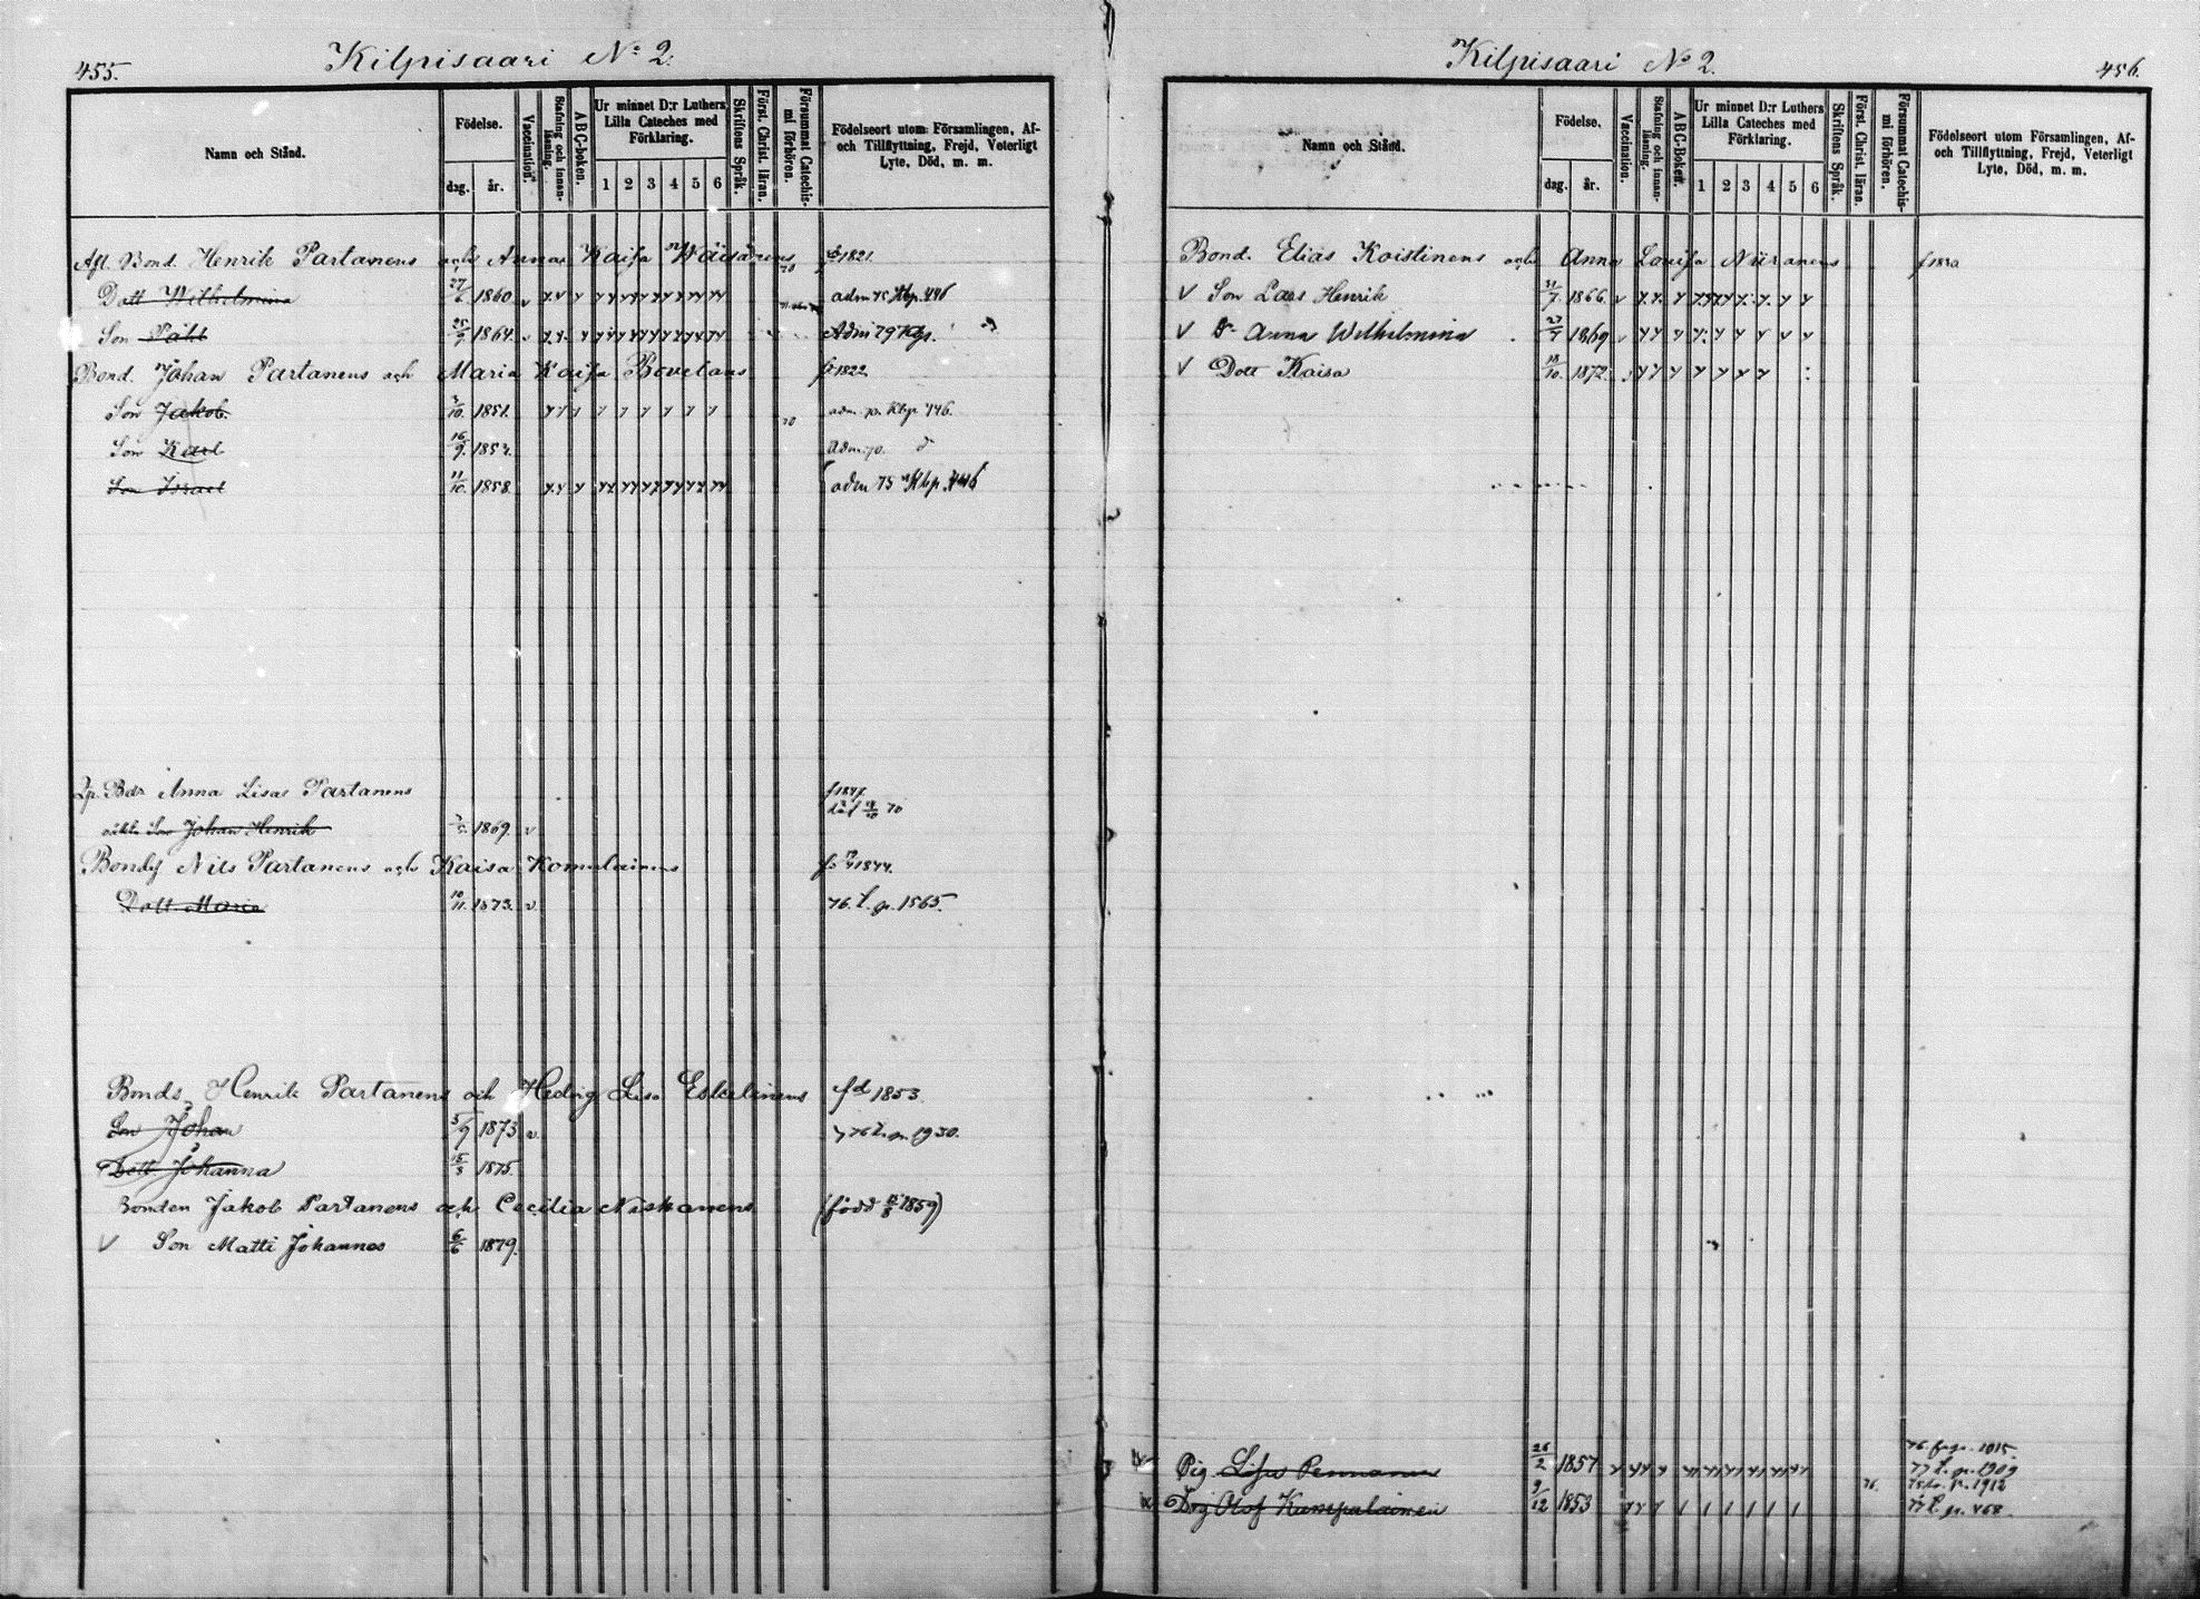 455.
Kilpisaari No 2.
Namn och Stånd.
Födelse.
dag.
år.
Vaccination.
Stafning och innan-läsning.
ABC-boken.
Ur minnet D:r Luthers Lilla Cateches med Förklaring.
1 2 3 4 5 6
Skriftens Språk.
Först. Christ. läran.
Försummat Catechis-mi förhören.
Födelseort utom Församlingen, Af- och Tillflyttning, Frejd, Veterligt Lyte, Död, m. m.
Afl. Bond. Henrik Partanens och Anna Kaisa Wäisänens 1821.
Dott Wilhelmina 27/6 1860 v adm 75 Kbp. 446
Son Påhl 25/9 1864 Adm 79 Kbp.
Bond. Johan Partanens och Maria Kaisa Bovelans f. 1822
Son Jakob. 1851. adm. 70. Kbp. 446.
Son Karl 16/9. adm. 70.
Son Israel 11/10. 1858. adm 75 Kbp. 446
Anna Lisas Partanens f 1847.
Son Johan Henrik 1869. v
Nils Partanens och Kaisa Komulainens 1844.
Dott. Maria 10/11. 1873. v 76. 1565.
Bonds. Henrik Partanens och Hedvig Lisa Eskelinens fd 1853
Son Johan 5/9 1873 v 1930.
Dott Johanna 15/3 1875.
Bonden Jakob Partanens och Cecilia Niskanens (född 1859)
V Son Matti Johannes 6/6 1879.
456.
Kilpisaari No 2.
Namn och Stånd.
Födelse.
dag.
år.
Vaccination.
Stafning och innan-läsning.
ABC-Boken.
Ur minnet D:r Luthers Lilla Cateches med Förklaring.
1 2 3 4 5 6
Skriftens Språk.
Först. Christ. läran.
Försummat Catechis-mi förhören.
Födelseort utom Församlingen, Af- och Tillflyttning, Frejd, Veterligt Lyte, Död, m. m.
Bond. Elias Koistinens och Anna Lovisa Niiranens
V Son Lars Henrik 1866. v
V Anna Wilhelmina 1869
V Dott Kaisa 1872.
Pig Lisa Pennanen 26/2 1857 76 1015. 77 1909
Drg Olof Kumpulainen 9/12 1853 76. 1912 468.